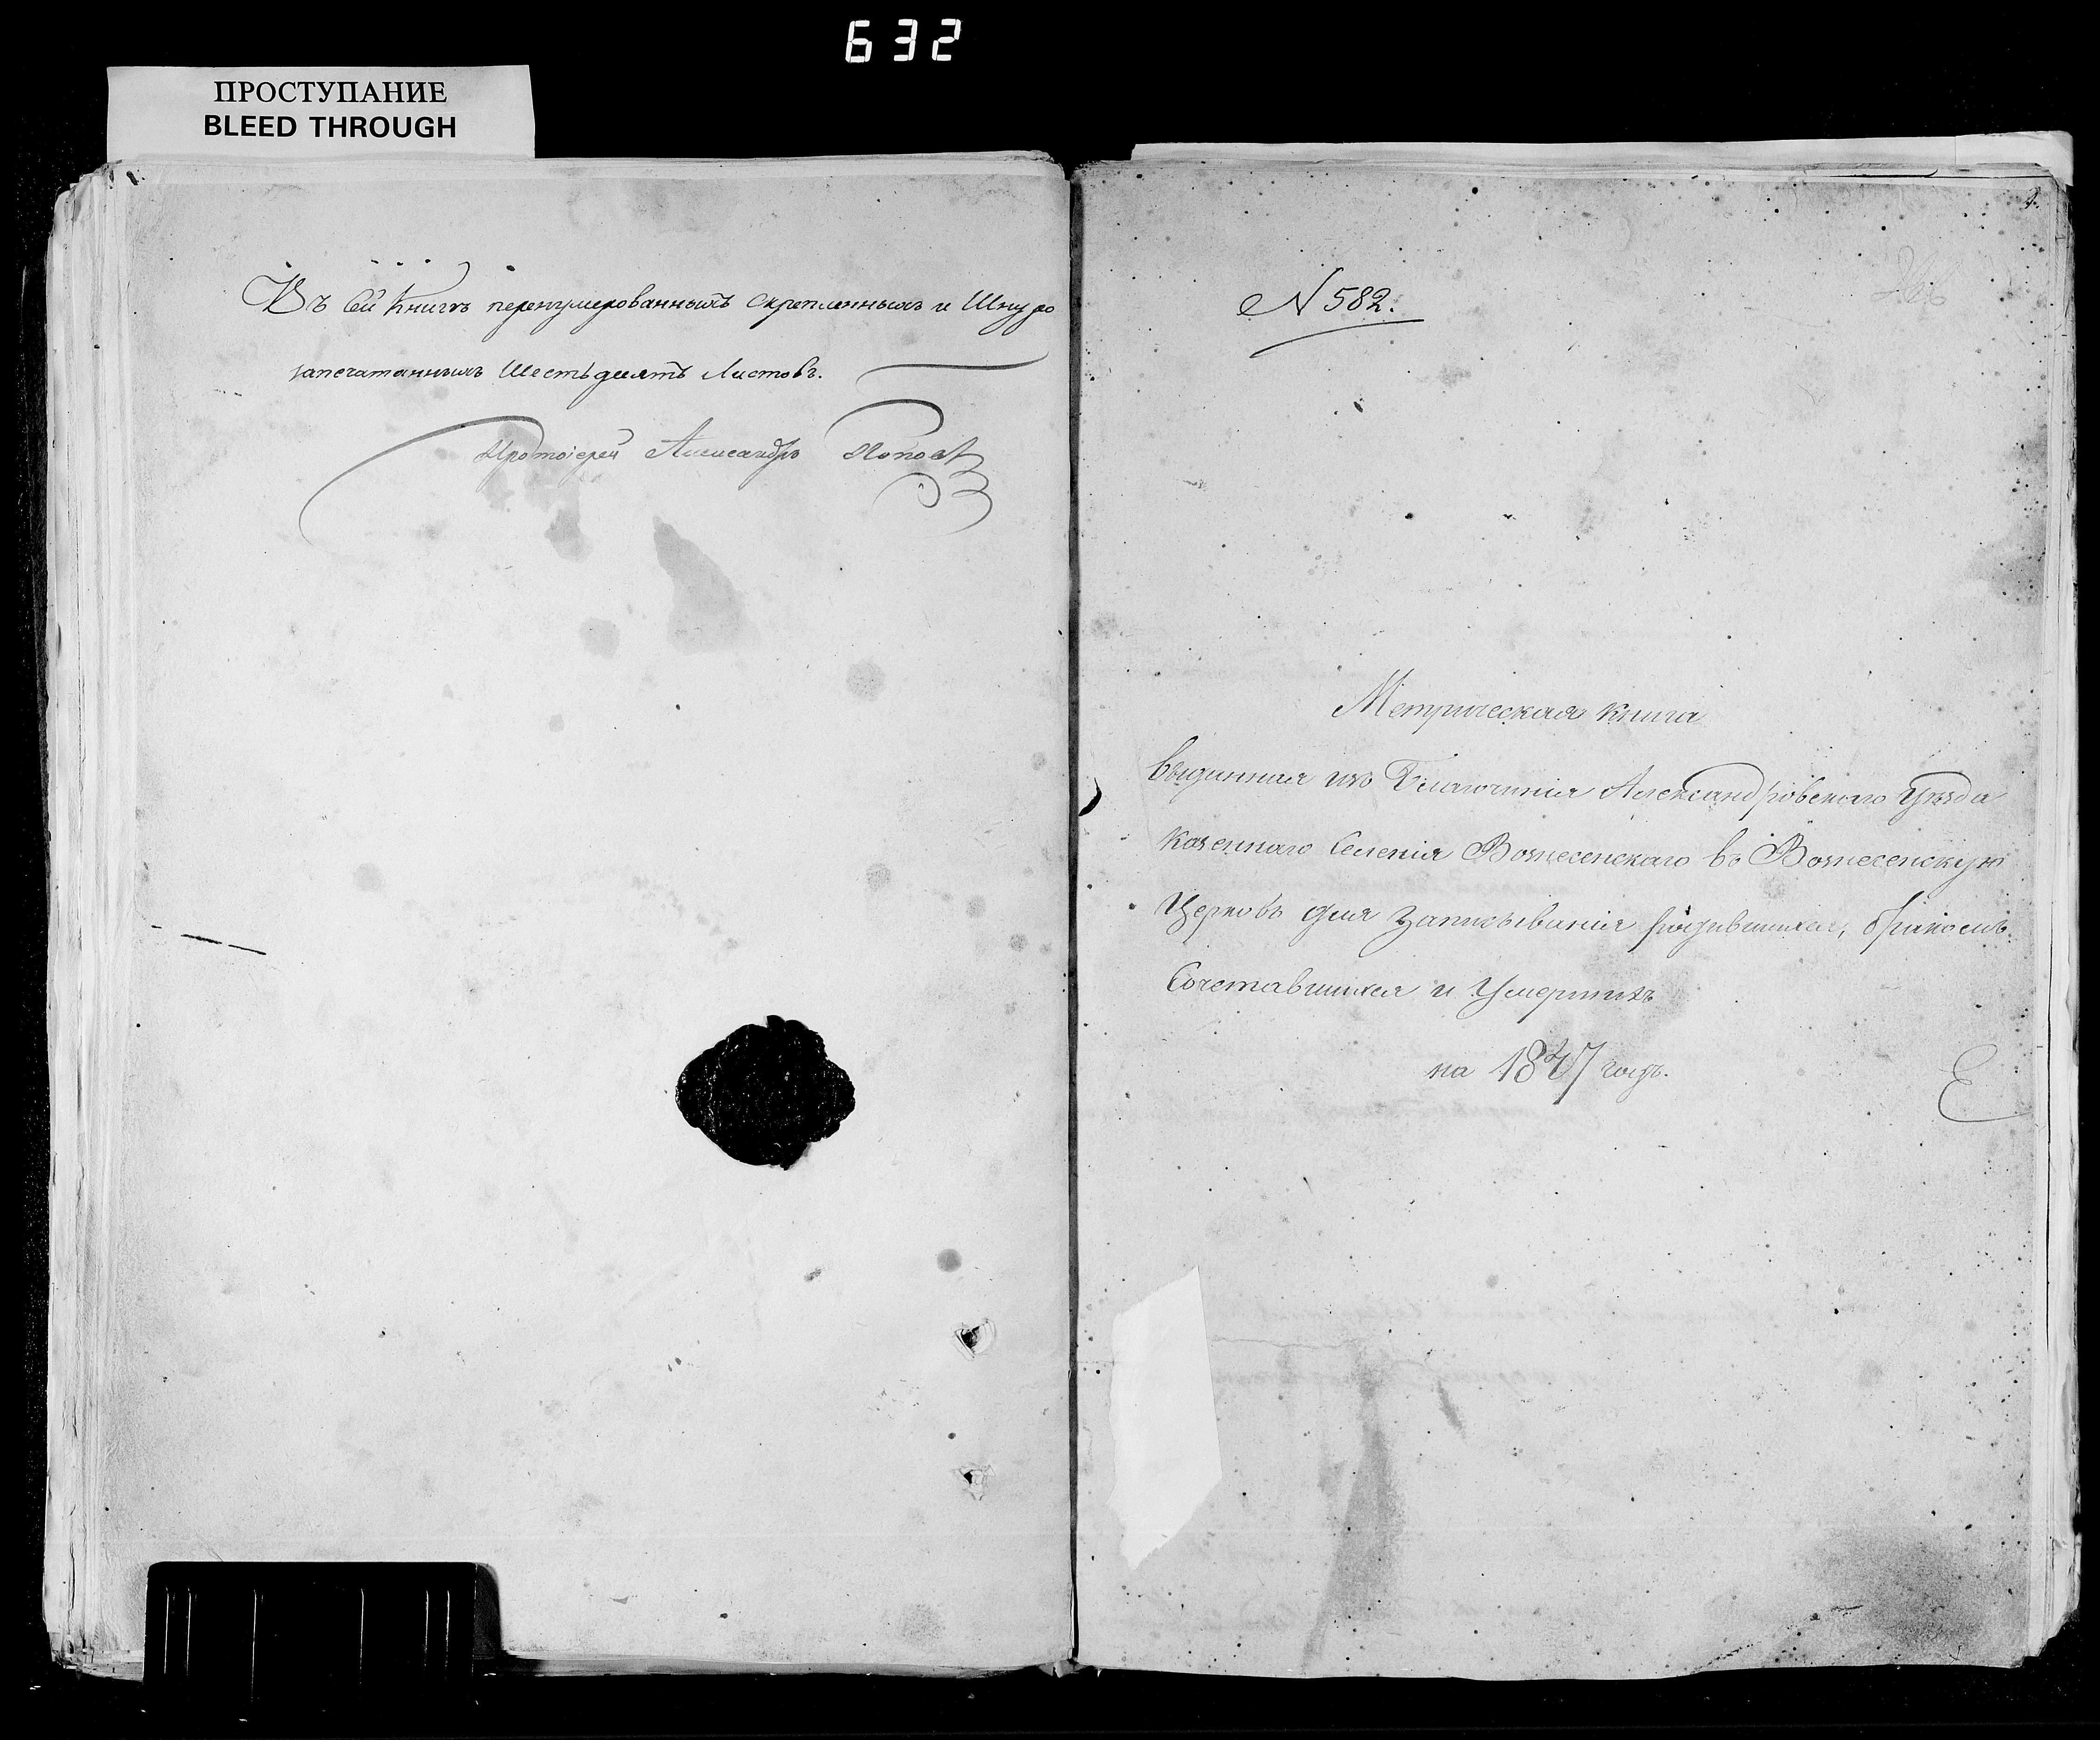 632
ПРОСТУПАНИЕ
BLEED THROUGH
Въ Сей Книгѣ перенумерованныхъ скрепленныхъ и Шнуро
запечатанныхъ Шестьдесятъ Листовъ.
Протоіерей Александръ Поповъ
N 582.
Метрическая книга
выданная изъ Благочинія Александровскаго Уѣзда
казеннаго Селенія Вознесенскаго въ Вознесенскую
Церковь для записыванія родившихся, бракомъ
Сочетавшихся и Умершихъ
на годъ.